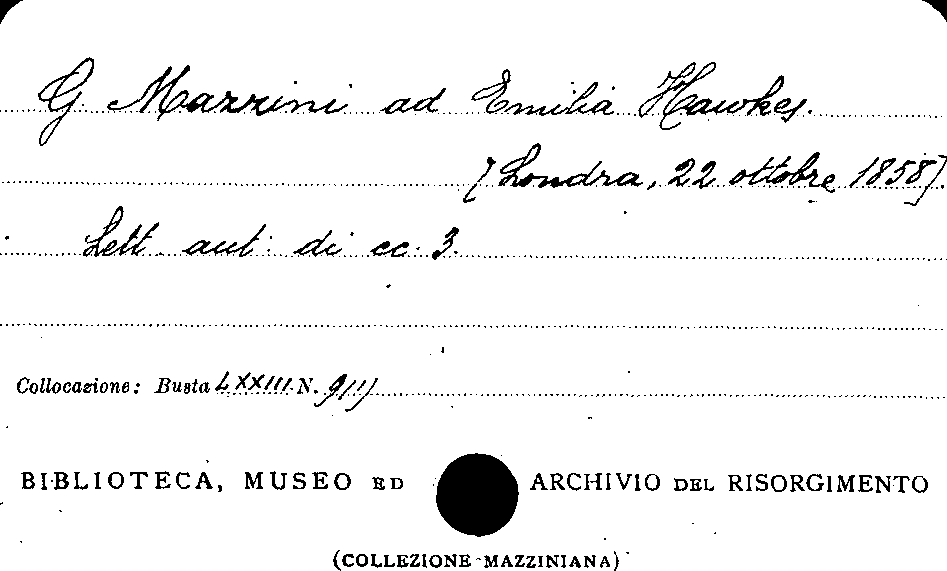 G. Mazzini ad Emilia Hawkes.
[Londra, 22 ottobre 1858].
Lett. aut. di cc. 3.
Collocazione: Busta LXXIII N. 9/1)
BIBLIOTECA, MUSEO ED ARCHIVIO DEL RISORGIMENTO
(COLLEZIONE MAZZINIANA)